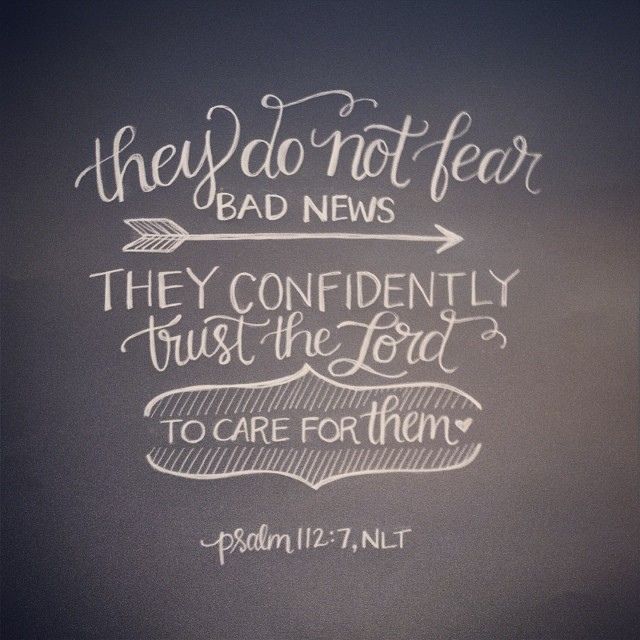 they do not fear
BAD NEWS
THEY CONFIDENTLY
trust the Lord
TO CARE FOR them
psalm 112:7, NLT